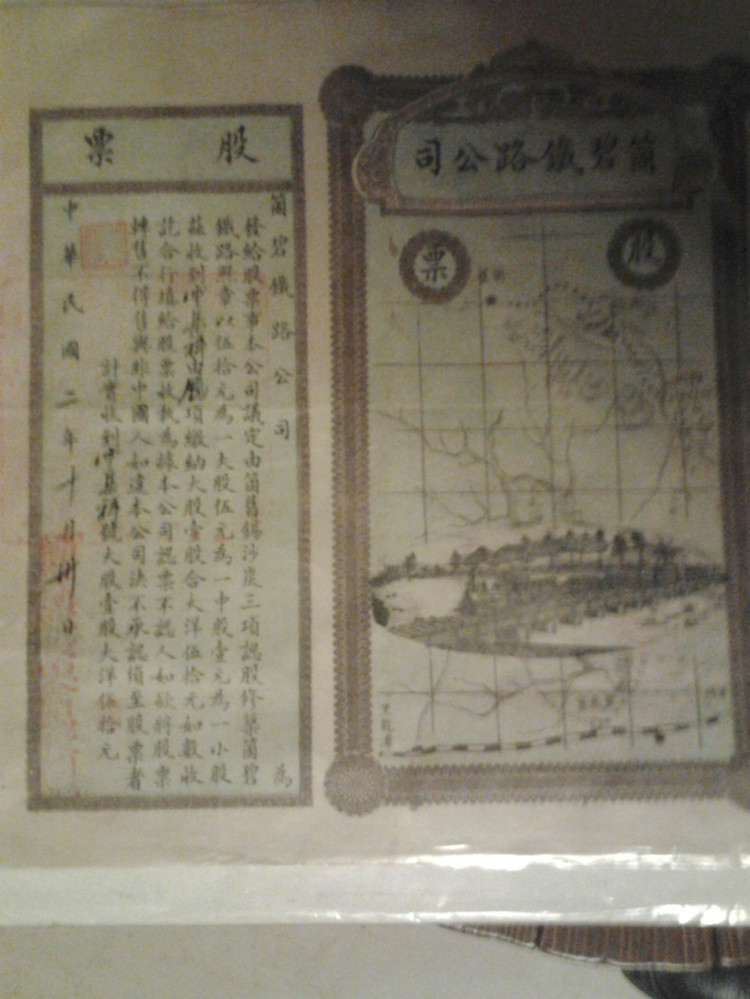 司公路鐵碧箇
股
票
票 股
箇碧鐵路公司 為
發給股票事本公司議定由箇舊錫沙炭三項認股修築箇碧
鐵路照章以伍拾元為一大股伍元為一中股壹元為一小股
茲收到 由 項繳納大股壹股合大洋伍拾元如數收
訖合行填給股票收執為據本公司認票不認人如欲將股票
轉售不得售與非中國人如違本公司決不承認須至股票者
計實收到 號大股壹股大洋伍拾元
中華民國二年十月卅日